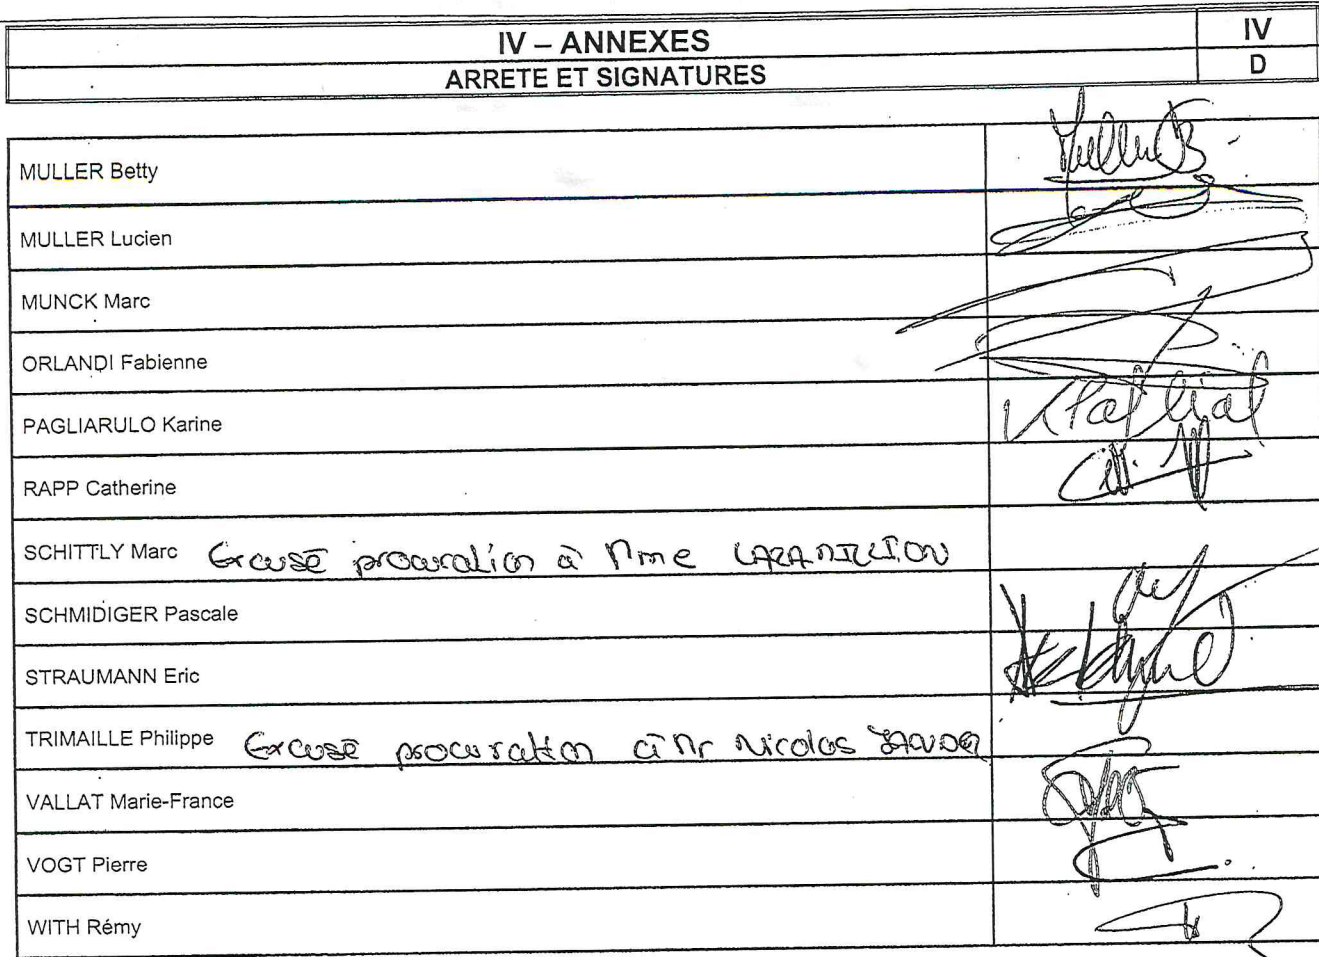 IV – ANNEXES
IV
ARRETE ET SIGNATURES
D
MULLER Betty
MULLER Lucien
MUNCK Marc
ORLANDI Fabienne
PAGLIARULO Karine
RAPP Catherine
SCHITTLY Marc Excusé procuration à Mme
SCHMIDIGER Pascale
STRAUMANN Eric
TRIMAILLE Philippe Excusé procuration à Mr Nicolas
VALLAT Marie-France
VOGT Pierre
WITH Rémy